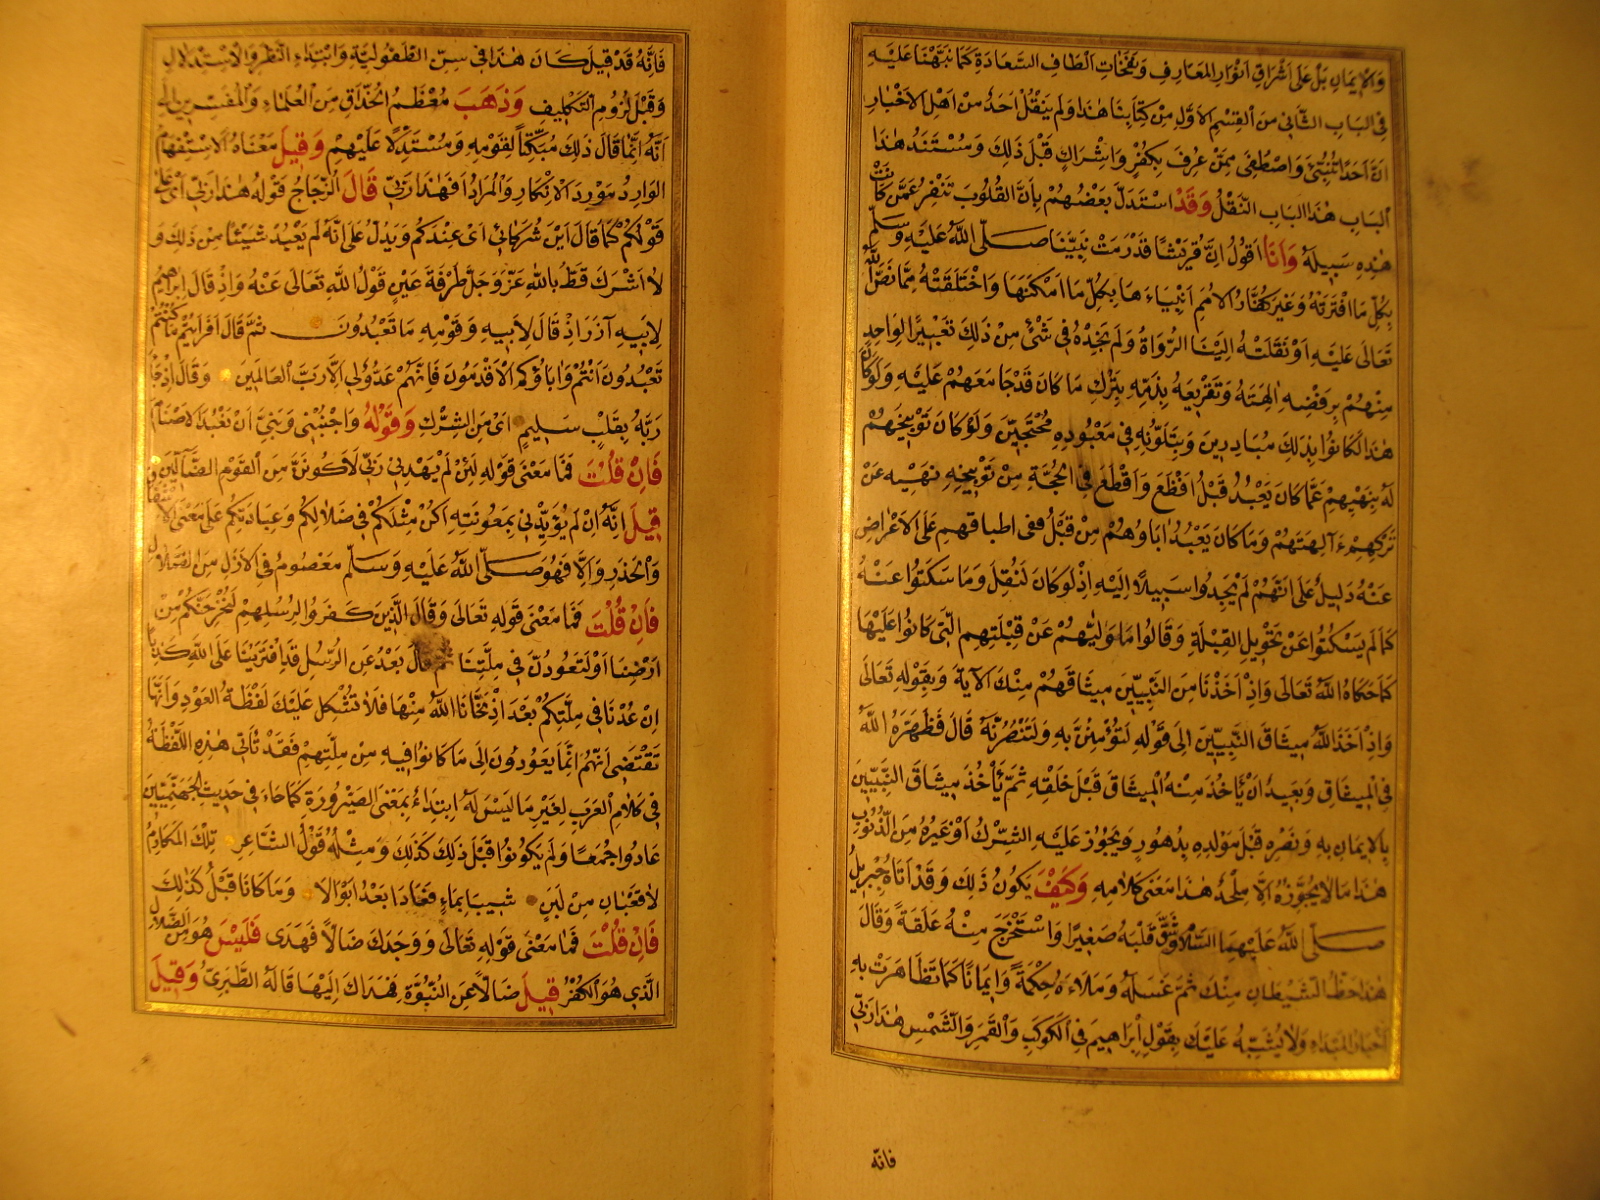 وَالْإِيمَانِ بَلْ عَلَى اشْرَاقِ اَنْوَارِ الْمَعَارِفِ وَنَفَحَاتِ اَلْطَافِ السَّعَادَةِ كَمَا نَبَّهْنَا عَلَيْهِ
فِي الْبَابِ الثَّانِي مِنَ الْقِسْمِ الْاَوَّلِ مِنْ كِتَابِنَا هٰذَا وَلَمْ يَنْقُلْ اَحَدٌ مِنْ اَهْلِ الْاَخْبَارِ
اَنَّ اَحَدًا تَنَبَّئَ وَاصْطُفِيَ مِمَّنْ عُرِفَ بِكُفْرٍ وَاِشْرَاكٍ قَبْلَ ذٰلِكَ وَمُسْتَنَدُ هٰذَا
الْبَابِ هٰذَا الْبَابِ النَّقْلُ وَقَدْ اسْتَدَلَّ بَعْضُهُمْ بِاَنَّ الْقُلُوبَ تَنْفِرُ عَمَّنْ كَانَتْ
هٰذِهِ سَبِيلَهُ وَاَنَا اَقُولُ اِنَّ قُرَيْشًا قَدْ رَمَتْ نَبِيَّنَا صَلَّى اللّٰهُ عَلَيْهِ وَسَلَّمَ
بِكُلِّ مَا افْتَرَتْهُ وَعَيَّرَ كُفَّارُ الْاُمَمِ اَنْبِيَاءَهَا بِكُلِّ مَا اَمْكَنَهَا وَاخْتَلَقَتْهُ مِمَّا نَصَّ اللّٰهُ
تَعَالَى عَلَيْهِ اَوْ نَقَلَتْهُ اِلَيْنَا الرُّوَاةُ وَلَمْ نَجِدْهُ فِي شَيْءٍ مِنْ ذٰلِكَ تَعْيِيرًا لِوَاحِدٍ
مِنْهُمْ بِرَفْضِهِ اٰلِهَتَهُ وَتَقْرِيعَهُ بِذَمِّهِ بِتَرْكِ مَا كَانَ قَدْ جَامَعَهُمْ عَلَيْهِ وَلَوْ كَانَ
هٰذَا لَكَانُوا بِذٰلِكَ مُبَادِرِينَ وَبِتَلَوُّنِهِ فِي مَعْبُودِهِ مُحْتَجِّينَ وَلَوْ كَانَ تَوْبِيخُهُمْ
لَهُ بِنَهْيِهِمْ عَمَّا كَانَ يَعْبُدُ قَبْلُ اَفْظَعَ وَاَقْطَعَ فِي الْحُجَّةِ مِنْ تَوْبِيخِهِ نَهْيِهِ عَنْ
تَرْكِهِمْ اٰلِهَتَهُمْ وَمَا كَانَ يَعْبُدُ اٰبَاؤُهُمْ مِنْ قَبْلُ فَفِي اطباقهم عَلَى الْاِعْرَاضِ
عَنْهُ دَلِيلٌ عَلَى اَنَّهُمْ لَمْ يَجِدُوا سَبِيلًا اِلَيْهِ اِذْ لَوْ كَانَ لَنُقِلَ وَمَا سَكَتُوا عَنْهُ
كَمَا لَمْ يَسْكُتُوا عَنْ تَحْوِيلِ الْقِبْلَةِ وَقَالُوا مَا وَلّٰيهُمْ عَنْ قِبْلَتِهِمِ الَّتِي كَانُوا عَلَيْهَا
كَمَا حَكَاهُ اللّٰهُ تَعَالَى وَاِذْ اَخَذْنَا مِنَ النَّبِيِّينَ مِيثَاقَهُمْ مِنْكَ الْاٰيَةَ وَبِقَوْلِهِ تَعَالَى
وَاِذْ اَخَذَ اللّٰهُ مِيثَاقَ النَّبِيِّينَ اِلَى قَوْلِهِ لَتُؤْمِنُنَّ بِهِ وَلَتَنْصُرُنَّهُ قَالَ فَطَهَّرَهُ اللّٰهُ
فِي الْمِيثَاقِ وَبَعِيدٌ اَنْ يَأْخُذَ مِنْهُ الْمِيثَاقَ قَبْلَ خَلْقِهِ ثُمَّ يَأْخُذَ مِيثَاقَ النَّبِيِّينَ
بِالْاِيمَانِ بِهِ وَنَصْرِهِ قَبْلَ مَوْلِدِهِ بِدُهُورٍ وَيَجُوزُ عَلَيْهِ الشِّرْكُ اَوْ غَيْرُهُ مِنَ الذُّنُوبِ
هٰذَا مَا لَا يُجَوِّزُهُ اِلَّا مُلْحِدٌ هٰذَا مَعْنَى كَلَامِهِ وَكَيْفَ يَكُونُ ذٰلِكَ وَقَدْ اَتَاهُ جِبْرِيلُ
صَلَّى اللّٰهُ عَلَيْهِمَا السَّلَامُ وَشَقَّ قَلْبَهُ صَغِيرًا وَاسْتَخْرَجَ مِنْهُ عَلَقَةً وَقَالَ
هٰذَا حَظُّ الشَّيْطَانِ مِنْكَ ثُمَّ غَسَلَهُ وَمَلَاَهُ حِكْمَةً وَاِيمَانًا كَمَا تَظَاهَرَتْ بِهِ
اَخْبَارُ الْمَبْدَاِ وَلَا يُشَبَّهُ عَلَيْكَ بِقَوْلِ اِبْرَاهِيمَ فِي الْكَوْكَبِ وَالْقَمَرِ وَالشَّمْسِ هٰذَا رَبِّي
فانّه
فَاِنَّهُ قَدْ قِيلَ كَانَ هٰذَا فِي سِنِّ الطُّفُولِيَّةِ وَابْتِدَاءِ النَّظَرِ وَالْاِسْتِدْلَالِ
وَقَبْلَ لُزُومِ التَّكْلِيفِ وَذَهَبَ مُعْظَمُ الْحُذَّاقِ مِنَ الْعُلَمَاءِ وَالْمُفَسِّرِينَ اِلَى
اَنَّهُ اِنَّمَا قَالَ ذٰلِكَ مُبَكِّتًا لِقَوْمِهِ وَمُسْتَدِلًّا عَلَيْهِمْ وَقِيلَ مَعْنَاهُ الْاِسْتِفْهَامُ
الْوَارِدُ مَوْرِدَ الْاِنْكَارِ وَالْمُرَادُ اَفَهٰذَا رَبِّي قَالَ الزَّجَّاجُ قَوْلُهُ هٰذَا رَبِّي اَيْ عَلَى
قَوْلِكُمْ كَمَا قَالَ اَيْنَ شُرَكَائِي اَيْ عِنْدَكُمْ وَيَدُلُّ عَلَى اَنَّهُ لَمْ يَعْبُدْ شَيْئًا مِنْ ذٰلِكَ وَ
لَا اَشْرَكَ قَطُّ بِاللّٰهِ عَزَّ وَجَلَّ طَرْفَةَ عَيْنٍ قَوْلُ اللّٰهِ تَعَالَى عَنْهُ وَاِذْ قَالَ اِبْرَاهِيمُ
لِاَبِيهِ اٰزَرَ اِذْ قَالَ لِاَبِيهِ وَقَوْمِهِ مَا تَعْبُدُونَ ثُمَّ قَالَ اَفَرَاَيْتُمْ مَا كُنْتُمْ
تَعْبُدُونَ اَنْتُمْ وَاٰبَاؤُكُمُ الْاَقْدَمُونَ فَاِنَّهُمْ عَدُوٌّ لِي اِلَّا رَبَّ الْعَالَمِينَ وَقَالَ اِذْ جَاءَ
رَبَّهُ بِقَلْبٍ سَلِيمٍ اَيْ مِنَ الشِّرْكِ وَقَوْلُهُ وَاجْنُبْنِي وَبَنِيَّ اَنْ نَعْبُدَ الْاَصْنَامَ
فَاِنْ قُلْتَ فَمَا مَعْنَى قَوْلِهِ لَئِنْ لَمْ يَهْدِنِي رَبِّي لَاَكُونَنَّ مِنَ الْقَوْمِ الضَّالِّينَ
قِيلَ اِنَّهُ اِنْ لَمْ يُؤَيِّدْنِي بِمَعُونَتِهِ اَكُنْ مِثْلَكُمْ فِي ضَلَالِكُمْ وَعِبَادَتِكُمْ عَلَى مَعْنَى الْاِشْفَاقِ
وَالْحَذَرِ وَاِلَّا فَهُوَ صَلَّى اللّٰهُ عَلَيْهِ وَسَلَّمَ مَعْصُومٌ فِي الْاَزَلِ مِنَ الضَّلَالِ
فَاِنْ قُلْتَ فَمَا مَعْنَى قَوْلِهِ تَعَالَى وَقَالَ الَّذِينَ كَفَرُوا لِرُسُلِهِمْ لَنُخْرِجَنَّكُمْ مِنْ
اَرْضِنَا اَوْ لَتَعُودُنَّ فِي مِلَّتِنَا ثُمَّ قَالَ بَعْدُ عَنِ الرُّسُلِ قَدِ افْتَرَيْنَا عَلَى اللّٰهِ كَذِبًا
اِنْ عُدْنَا فِي مِلَّتِكُمْ بَعْدَ اِذْ نَجَّانَا اللّٰهُ مِنْهَا فَلَا تُشْكِلُ عَلَيْكَ لَفْظَةُ الْعَوْدِ وَاَنَّهَا
تَقْتَضِي اَنَّهُمْ اِنَّمَا يَعُودُونَ اِلَى مَا كَانُوا فِيهِ مِنْ مِلَّتِهِمْ فَقَدْ تَأْتِي هٰذِهِ اللَّفْظَةُ
فِي كَلَامِ الْعَرَبِ لِغَيْرِ مَا لَيْسَ لَهُ ابْتِدَاءٌ بِمَعْنَى الصَّيْرُورَةِ كَمَا جَاءَ فِي حَدِيثِ الْجَهَنَّمِيِّينَ
عَادُوا حُمَمًا وَلَمْ يَكُونُوا قَبْلَ ذٰلِكَ كَذٰلِكَ وَمِثْلُهُ قَوْلُ الشَّاعِرِ تِلْكَ الْمَكَارِمُ
لَا قَعْبَانِ مِنْ لَبَنٍ شِيبَا بِمَاءٍ فَعَادَا بَعْدُ اَبْوَالَا وَمَا كَانَا قَبْلُ كَذٰلِكَ
فَاِنْ قُلْتَ فَمَا مَعْنَى قَوْلِهِ تَعَالَى وَوَجَدَكَ ضَالًّا فَهَدَى فَلَيْسَ هُوَ مِنَ الضَّلَالِ
الَّذِي هُوَ الْكُفْرُ قِيلَ ضَالًّا عَنِ النُّبُوَّةِ فَهَدَاكَ اِلَيْهَا قَالَهُ الطَّبَرِيُّ وَقِيلَ